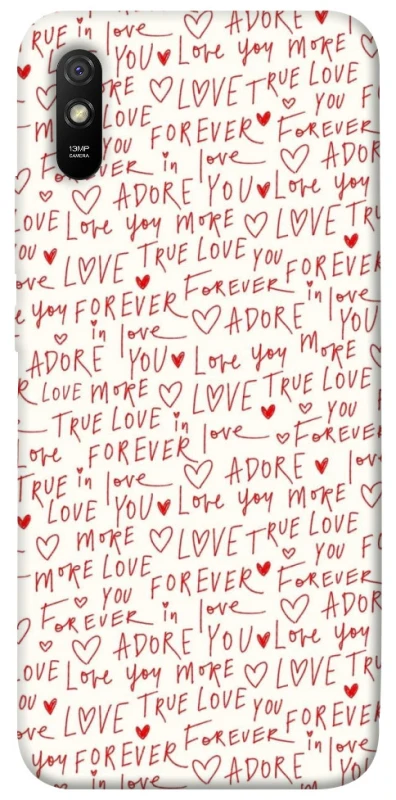 RUE in love ADORE
YOU♥ Love you MORE
MORE ♡ LOVE TRUE LOVE
13MP
CAMERA
MORE LOVE YOU
FOREVER♥ FOREVER
FOREVER in love ♡ ADOR
♡ ADORE YOU♥ Love you
LOVE Love you MORE ♡ LOVE TRU
OU ♥ LOVE TRUE LOVE YOU FOREVER
ove FOREVER in love
you FOREVER ♡ ADORE YOU
in love
ADORE YOU♥ Love you MORE ♡
LOVE MORE ♡ LOVE TRUE LOVE
TRUE LOVE in love ♡ YOU ♥
Love FOREVER ♡ FOREVER
TRUE in love ♡ ADORE ♥ love
♥ LOVE YOU♥ Love you MORE
♡ MORE ♡ LOVE TRUE LOVE
MORE LOVE ♡ YOU F
FOREVER♥ FOREVER
FOREVER in love ♡ ADOR
♡ ADORE YOU♥ Love you
LOVE Love you MORE ♡ LOVE TRU
OU ♥ LOVE TRUE LOVE YOU FOREVER
ove FOREVER in love
you FOREVER ♡ ADORE YOU
in love